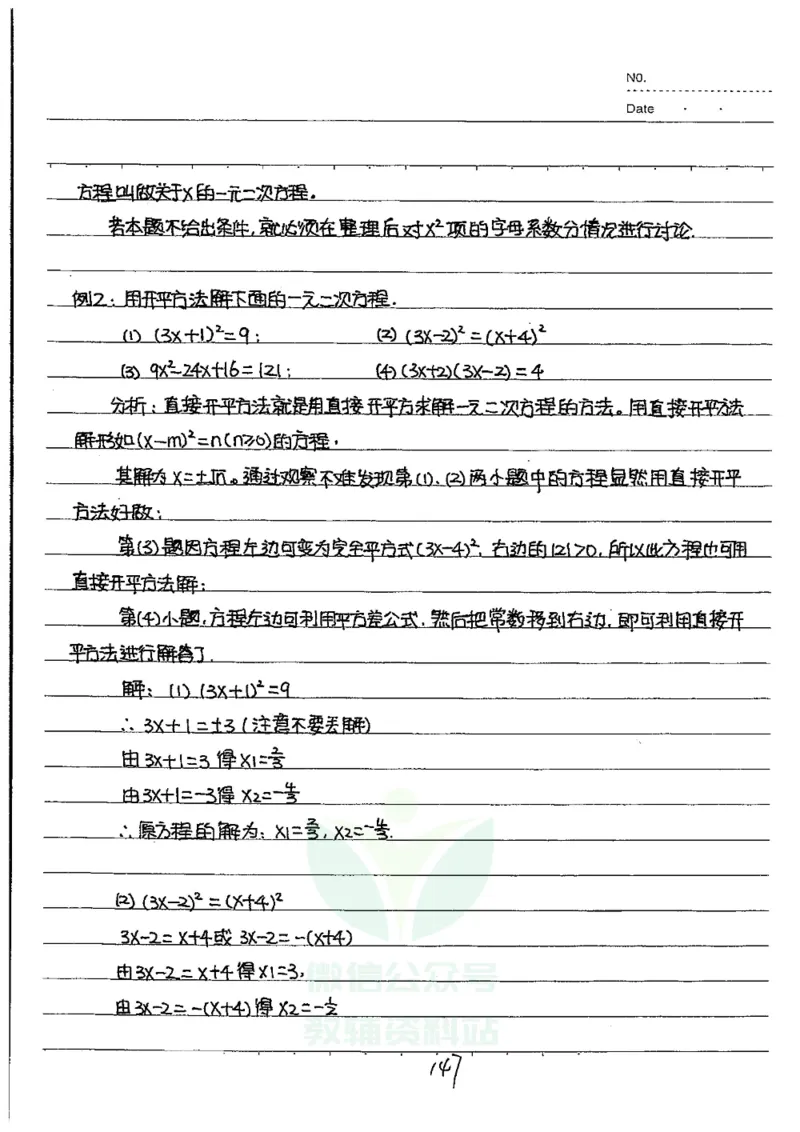 NO.
Date
方程叫做关于x的一元二次方程.
若本题不给出条件,就必须在整理后对x²项的字母系数分情况进行讨论.
例2:用开平方法解下面的一元二次方程.
(1) (3x+1)²=9; (2) (3x-2)²=(x+4)²
(3) 9x²-24x+16=121; (4) (3x+2)(3x-2)=4
分析:直接开平方法就是用直接开平方求解一元二次方程的方法。用直接开平方法
解形如(x-m)²=n(n≥0)的方程,
其解为x=±√n。通过观察不难发现第(1)、(2)两小题中的方程显然用直接开平
方法好做;
第(3)题因方程左边可变为完全平方式(3x-4)²,右边的121>0,所以此方程也可用
直接开平方法解;
第(4)小题,方程左边可利用平方差公式,然后把常数移到右边,即可利用直接开
平方法进行解答了.
解:(1) (3x+1)²=9
∴3x+1=±3(注意不要丢解)
由3x+1=3得x1=2/3
由3x+1=-3得x2=-4/3
∴原方程的解为:x1=2/3,x2=-4/3.
(2) (3x-2)²=(x+4)²
3x-2=x+4或3x-2=-(x+4)
由3x-2=x+4得x1=3,
由3x-2=-(x+4)得x2=-1/2
微信公众号
教辅资料站
147